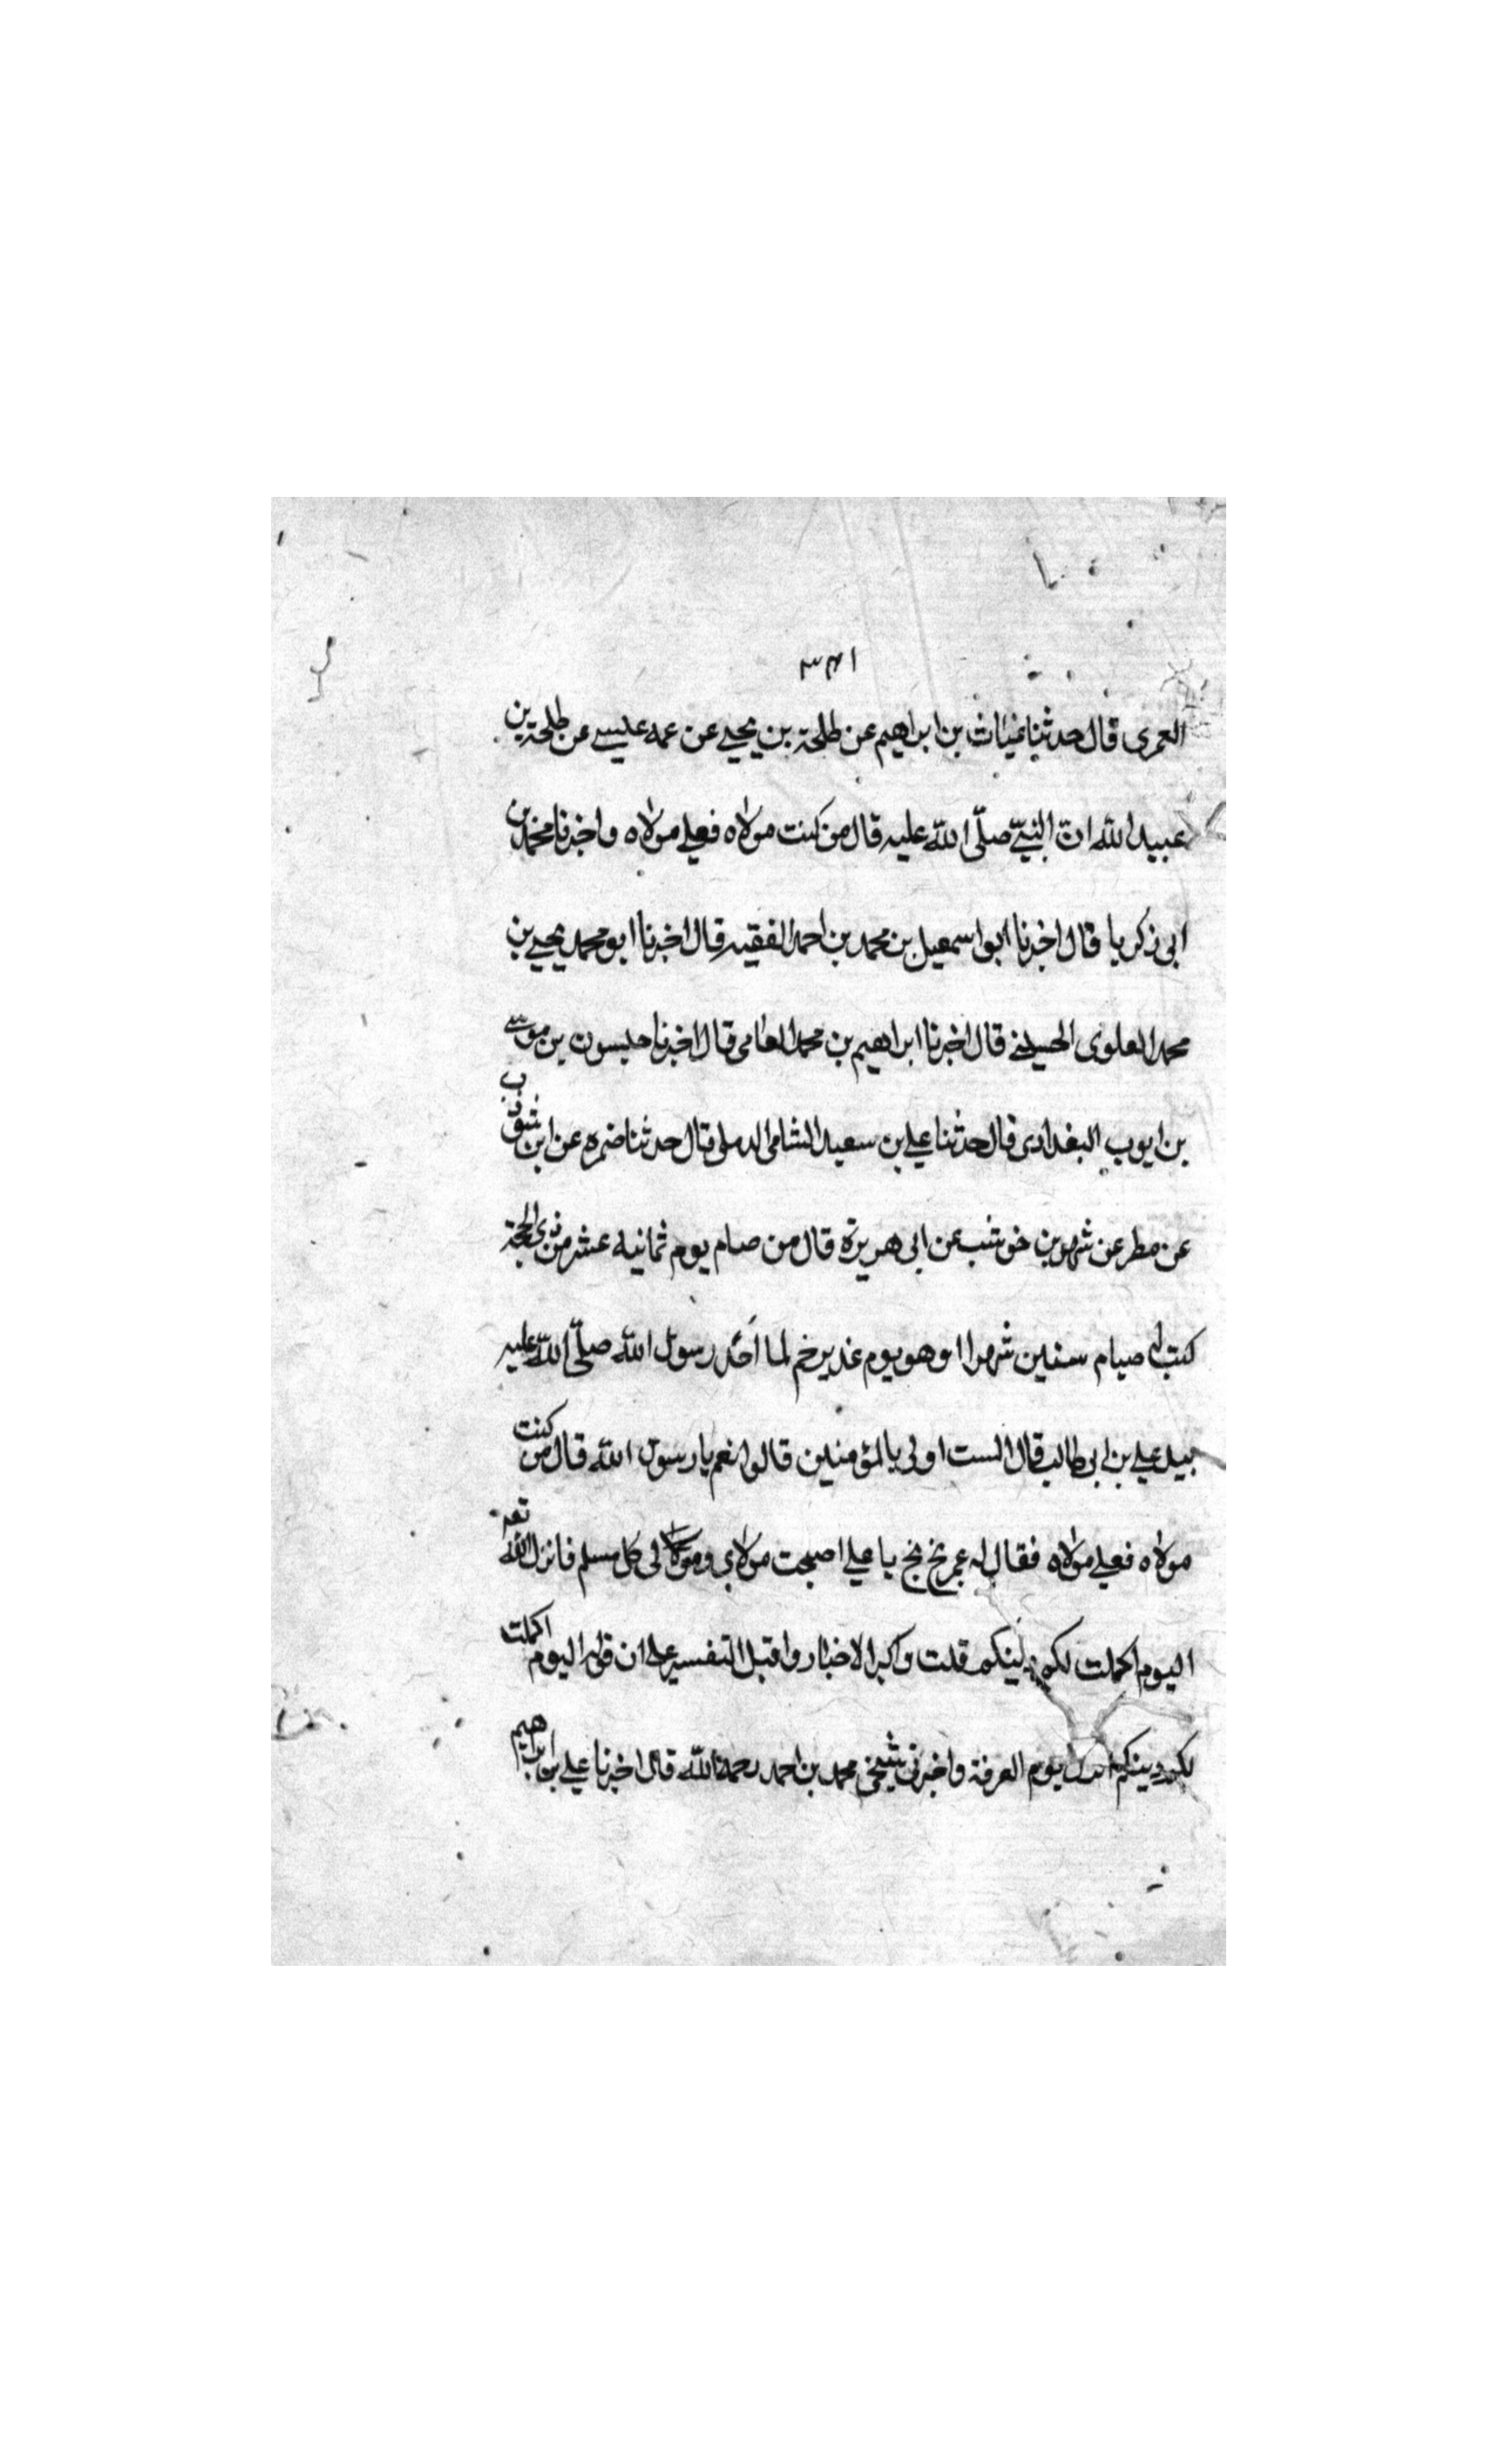 ٣٤١
العمرى قال حدثنا غياث بن ابراهيم عن طلحة بن يحيى عن عمه عيسى عن طلحة بن
عبيد الله ان النبي صلّى الله عليه قال من كنت مولاه فعلي مولاه واخبرنا محمد بن
ابى زكريا قال اخبرنا ابو اسمعيل بن محمد بن احمد الفقيه قال اخبرنا ابو محمد يحيى بن
محمد العلوى الحسينى قال اخبرنا ابراهيم بن محمد العامى قال اخبرنا حبسون بن موسى
بن ايوب البغدادى قال حدثنا علي بن سعيد الشامى الرملى قال حدثنا ضمره عن ابن شوذب
عن مطر عن شهر بن خوشب عن ابى هريرة قال من صام يوم ثمانيه عشر من ذى الحجة
كتب له صيام ستين شهرا وهو يوم غدير خم لما اخذ رسول الله صلّى الله عليه
بيد علي بن ابى طالب قال الست اولى بالمؤمنين قالوا نعم يا رسول الله قال من كنت
مولاه فعلي مولاه فقال له عمر بخ بخ يا علي اصبحت مولاى ومولا لى كل مسلم فانزل الله تعه
اليوم اكملت لكم دينكم قلت واكبر الاخبار واقبل التفسير على ان قوله اليوم اكملت
لكم دينكم نزل يوم العرفة واخبرنى شيخى محمد بن احمد رحمه الله قال اخبرنا علي بن ابراهيم